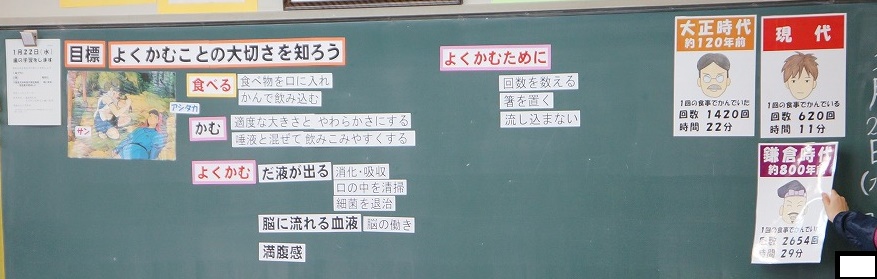 1月22日(水)
目標 よくかむことの大切さを知ろう
アシタカ
サン
食べる 食べ物を口に入れ
かんで飲み込む
かむ 適度な大きさと やわらかさにする
唾液と混ぜて 飲みこみやすくする
よくかむ だ液が出る 消化・吸収
口の中を清掃
細菌を退治
脳に流れる血液 脳の働き
満腹感
よくかむために
回数を数える
箸を置く
流し込まない
大正時代
約120年前
1回の食事でかんでいた
回数 1420回
時間 22分
現代
1回の食事でかんでいる
回数 620回
時間 11分
鎌倉時代
約800年前
1回の食事でかんでい
回数 2654回
時間 29分
月
2
日